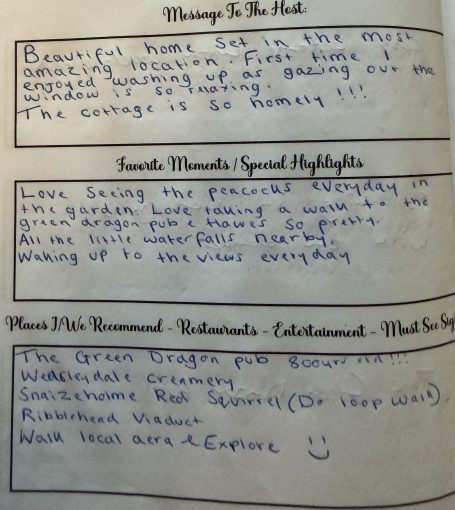 Message To The Host:
Beautiful home set in the most
amazing location. First time I
enjoyed washing up as gazing out the
window is so relaxing.
The cottage is so homely !!!
Favorite Moments / Special Highlights
Love seeing the peacocks everyday in
the garden. Love taking a walk to the
green dragon pub & Hawes so pretty.
All the little waterfalls nearby.
Waking up to the views everyday
Places I/We Recommend - Restaurants - Entertainment - Must See
The Green Dragon pub 800yrs old!!!
Wedsleydale creamery
Snaizeholme Red Squirrel (Do loop walk).
Ribblehead Viaduct
Walk local aera & Explore